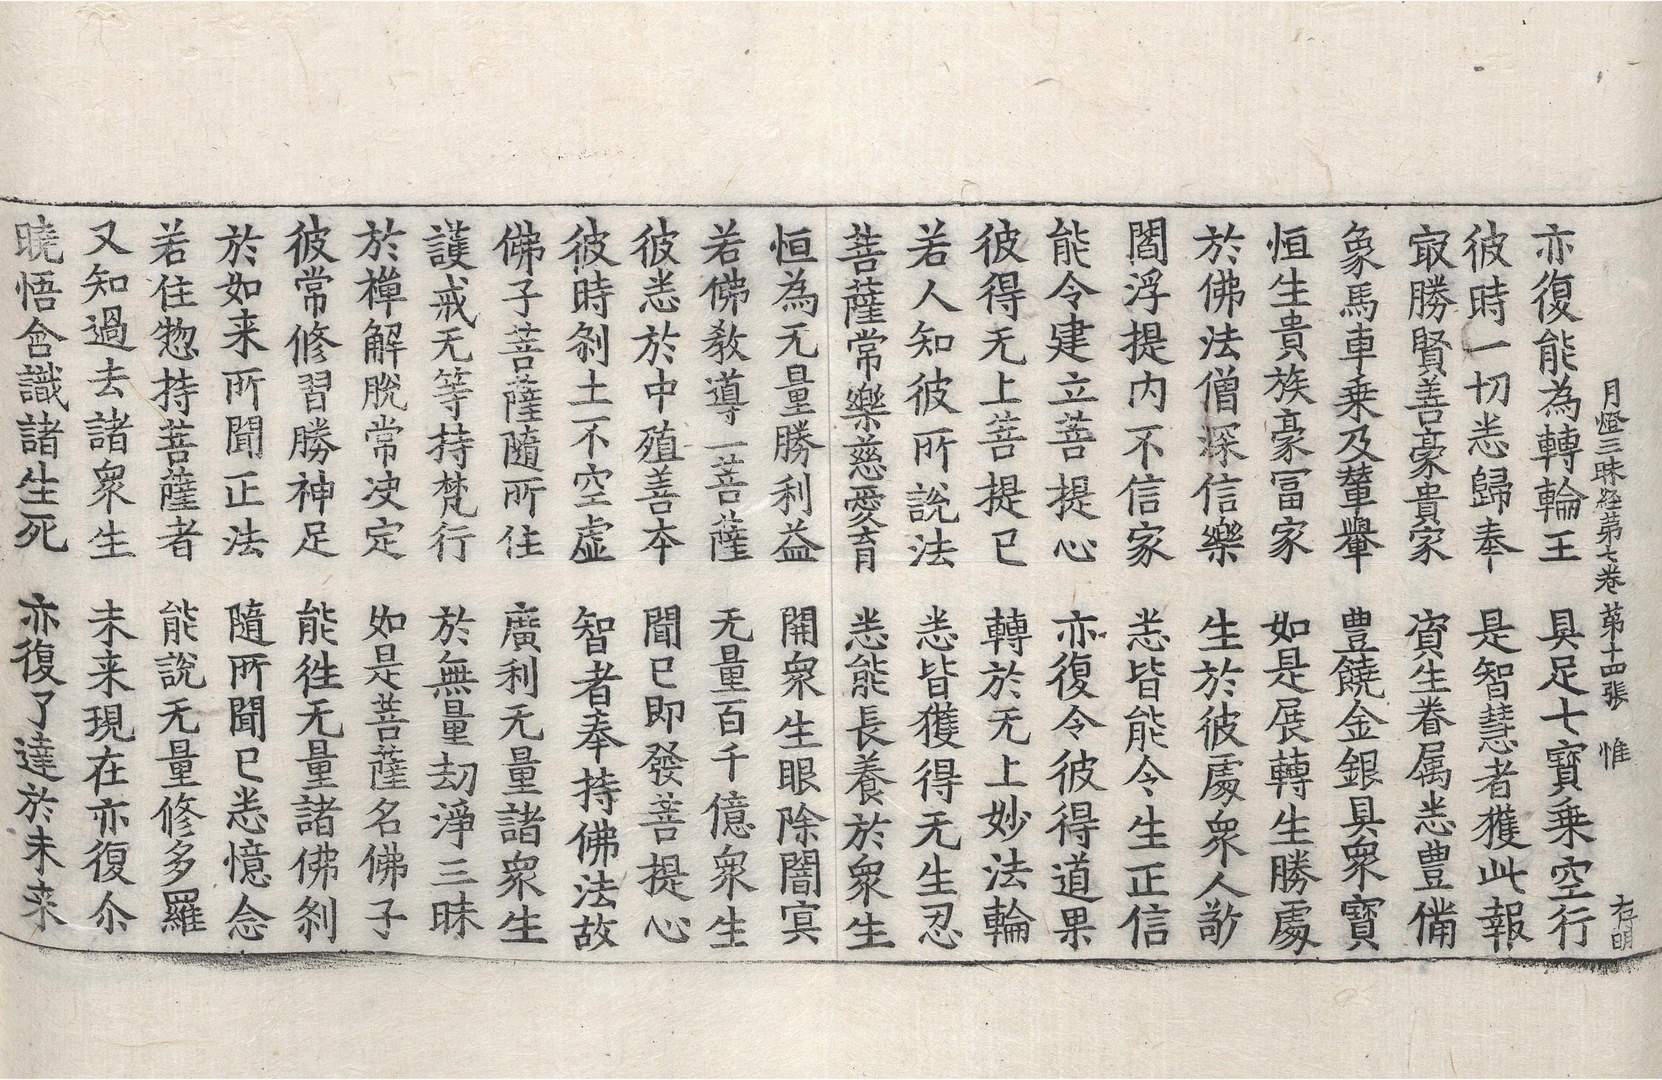 月燈三昧経第七卷 第十四張 惟 大存明
亦復能為轉輪王 具足七寶乗空行
彼時一切悉歸奉 是智慧者獲此報
㝡勝賢善豪貴家 資生眷属悉豊備
象馬車乗及輦轝 豊饒金銀具衆寶
恒生貴族豪冨家 如是展轉生勝處
於佛法僧深信樂 生於彼處衆人敬
閻浮提内不信家 悉皆能令生正信
能令建立菩提心 亦復令彼得道果
彼得无上菩提已 轉於无上妙法輪
若人知彼所說法 悉皆獲得无生忍
菩薩常樂慈愛育 悉能長養於衆生
恒為无量勝利益 開衆生眼除闇㝠
若佛教導一菩薩 无量百千億衆生
彼悉於中殖善夲 聞已即發菩提心
彼時刹土不空虚 智者奉持佛法故
佛子菩薩隨所住 廣利无量諸衆生
護戒无等持梵行 於無量劫淨三昧
於禪解脫常决定 如是菩薩名佛子
彼常修習勝神足 能徃无量諸佛刹
於如来所聞正法 隨所聞已悉憶念
若住惣持菩薩者 能說无量修多羅
又知過去諸衆生 未来現在亦復尒
曉悟含識諸生死 亦復了達於未来